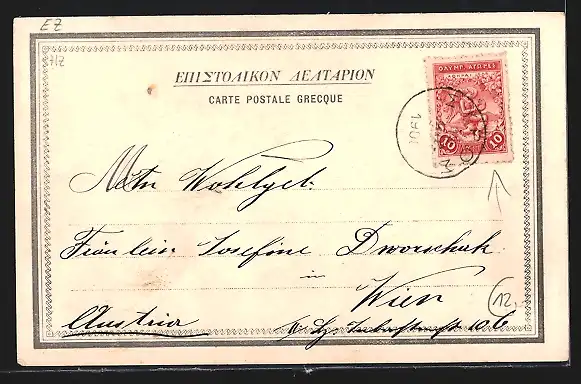 EZ
HZ
ΕΠΙΣΤΟΛΙΚΟΝ ΔΕΛΤΑΡΙΟΝ
CARTE POSTALE GRECQUE
ΟΛΥΜΠ. ΑΓΩΝΕΣ
10 10
Wohlgeb.
Fräulein Josefine Dworschak
in
Wien
12.-
Austria
106